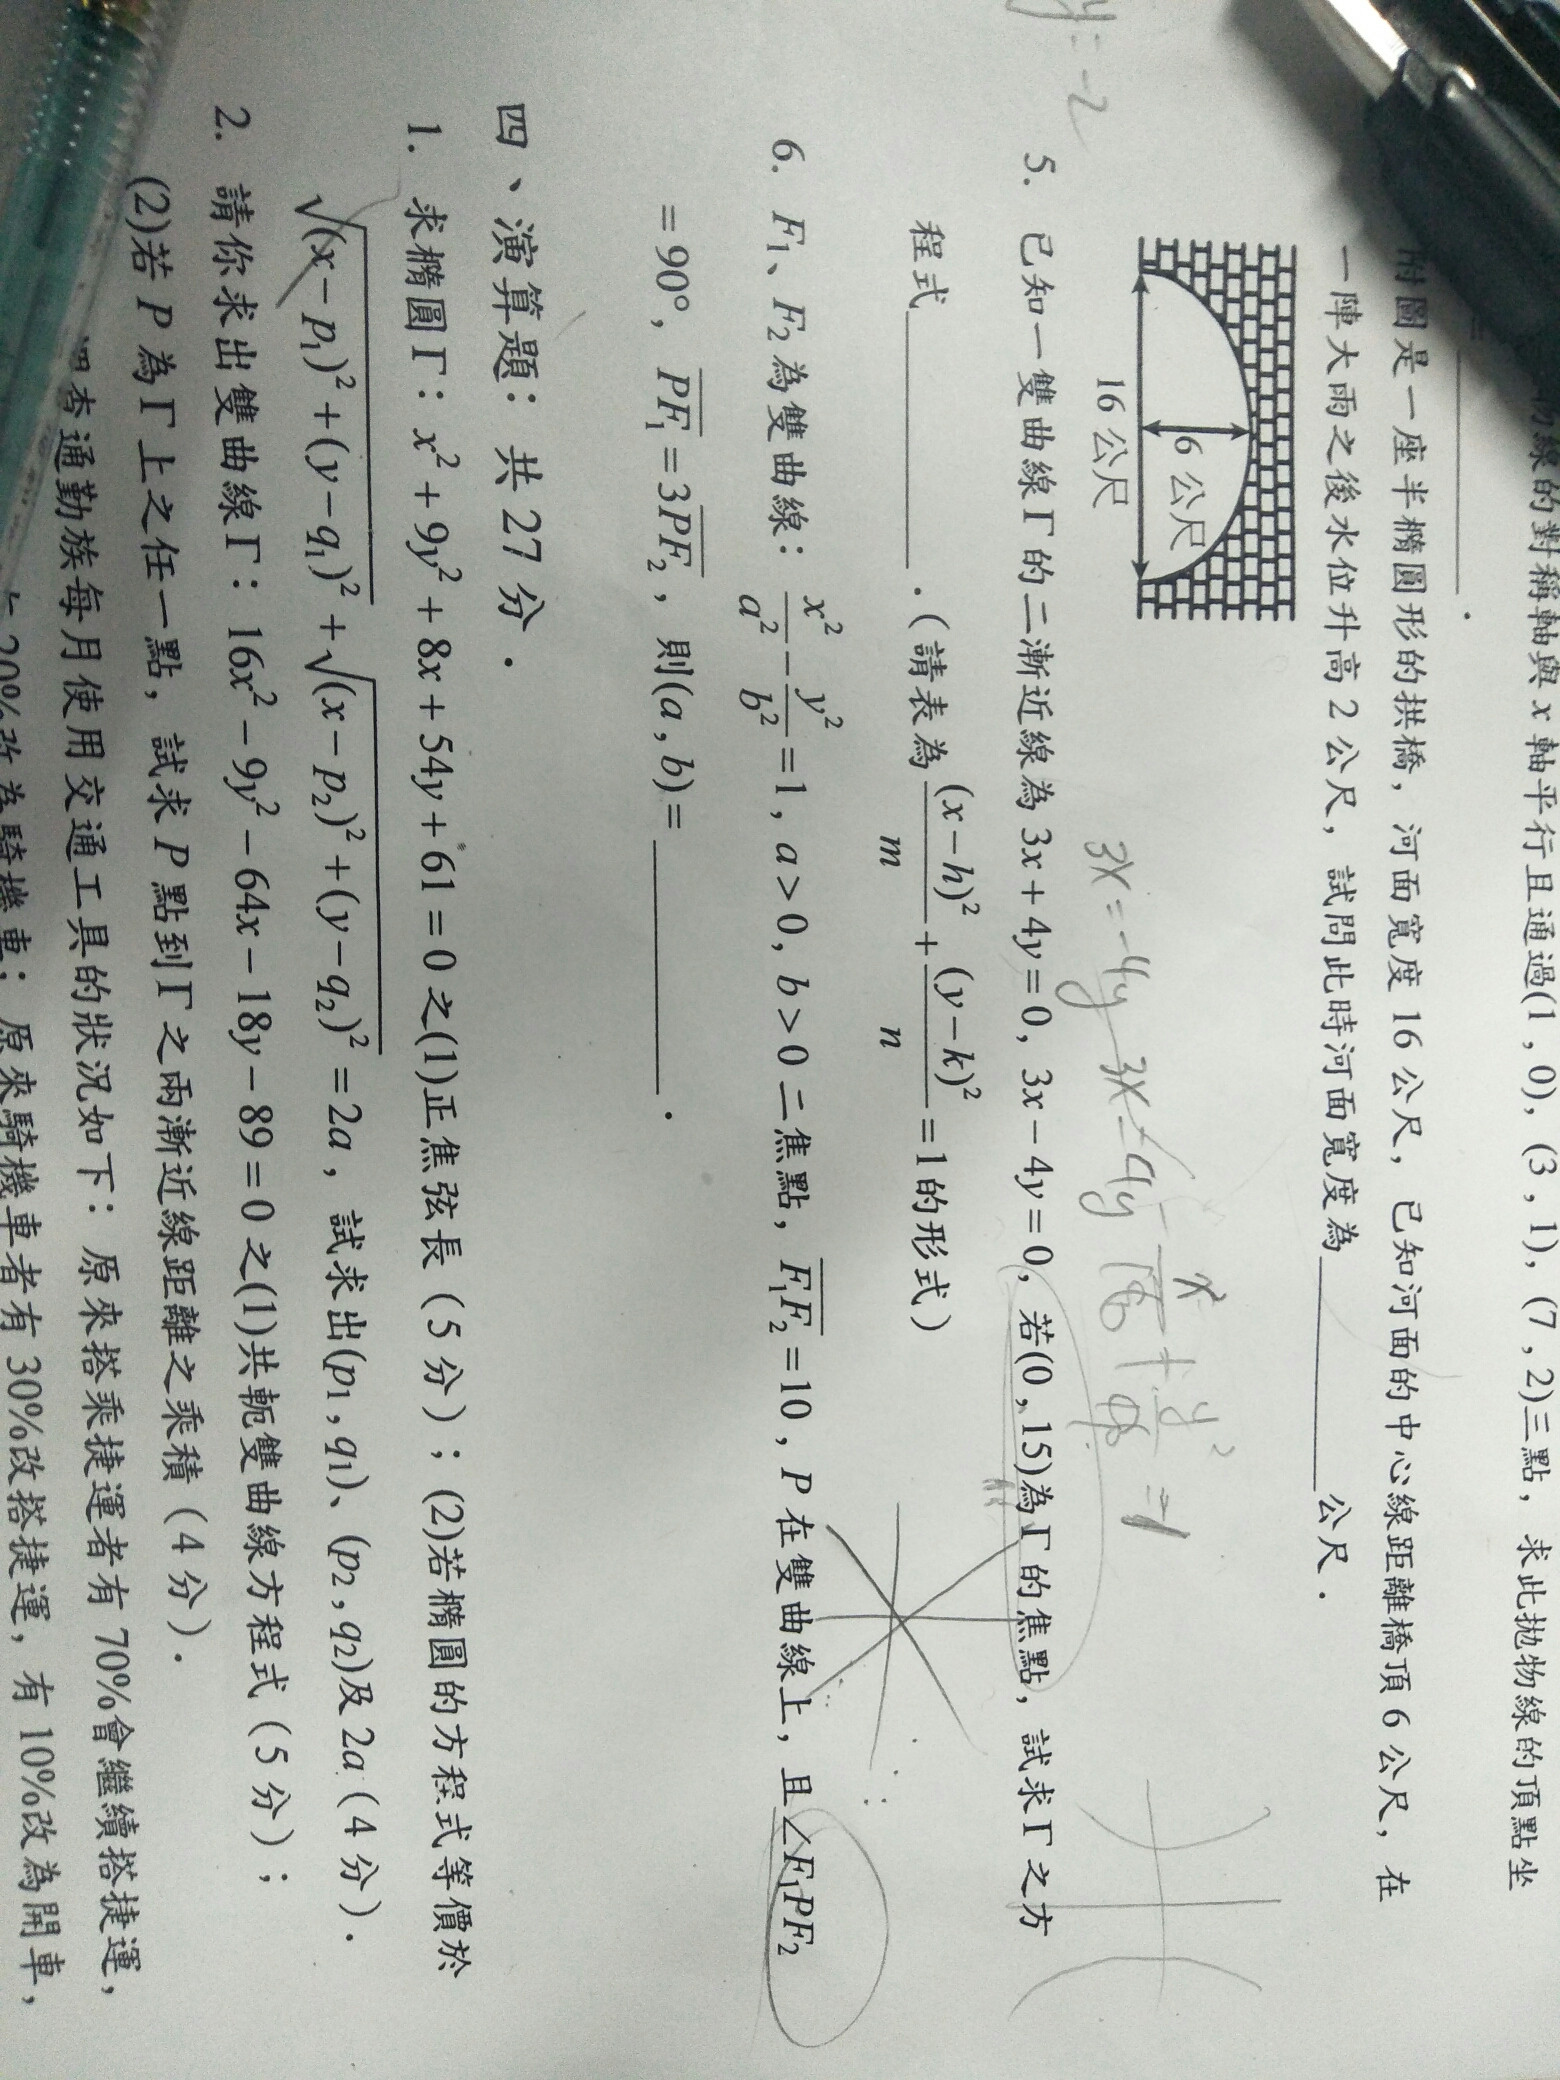 物線的對稱軸與 x 軸平行且通過(1 , 0), (3 , 1), (7 , 2)三點, 求此拋物線的頂點坐
= ________.
附圖是一座半橢圓形的拱橋, 河面寬度 16 公尺, 已知河面的中心線距離橋頂 6 公尺, 在
一陣大雨之後水位升高 2 公尺, 試問此時河面寬度為________公尺.
6 公尺
16 公尺
y=-2
3x=-4y 3x=4y
x² / 16 + y² / 9 = 1
5. 已知一雙曲線 Γ 的二漸近線為 3x + 4y = 0, 3x − 4y = 0, 若(0 , 15)為 Γ 的焦點, 試求 Γ 之方
程式________.(請表為 (x−h)²/m + (y−k)²/n = 1 的形式)
6. F₁、F₂ 為雙曲線: x²/a² − y²/b² = 1 , a > 0, b > 0 二焦點, F₁F₂ = 10 , P 在雙曲線上, 且∠F₁PF₂
= 90°, PF₁ = 3PF₂ , 則(a , b) = ________.
四、演算題: 共 27 分.
1. 求橢圓 Γ: x² + 9y² + 8x + 54y + 61 = 0 之(1)正焦弦長 (5 分) ; (2)若橢圓的方程式等價於
√(x − p₁)² + (y − q₁)² + √(x − p₂)² + (y − q₂)² = 2a , 試求出(p₁ , q₁)、(p₂ , q₂)及 2a (4 分).
2. 請你求出雙曲線 Γ: 16x² − 9y² − 64x − 18y − 89 = 0 之(1)共軛雙曲線方程式 (5 分) ;
(2)若 P 為 Γ 上之任一點, 試求 P 點到 Γ 之兩漸近線距離之乘積 (4 分).
調查通勤族每月使用交通工具的狀況如下: 原來搭乘捷運者有 70%會繼續搭捷運,
20%改為騎機車; 原來騎機車者有 30%改搭捷運, 有 10%改為開車,